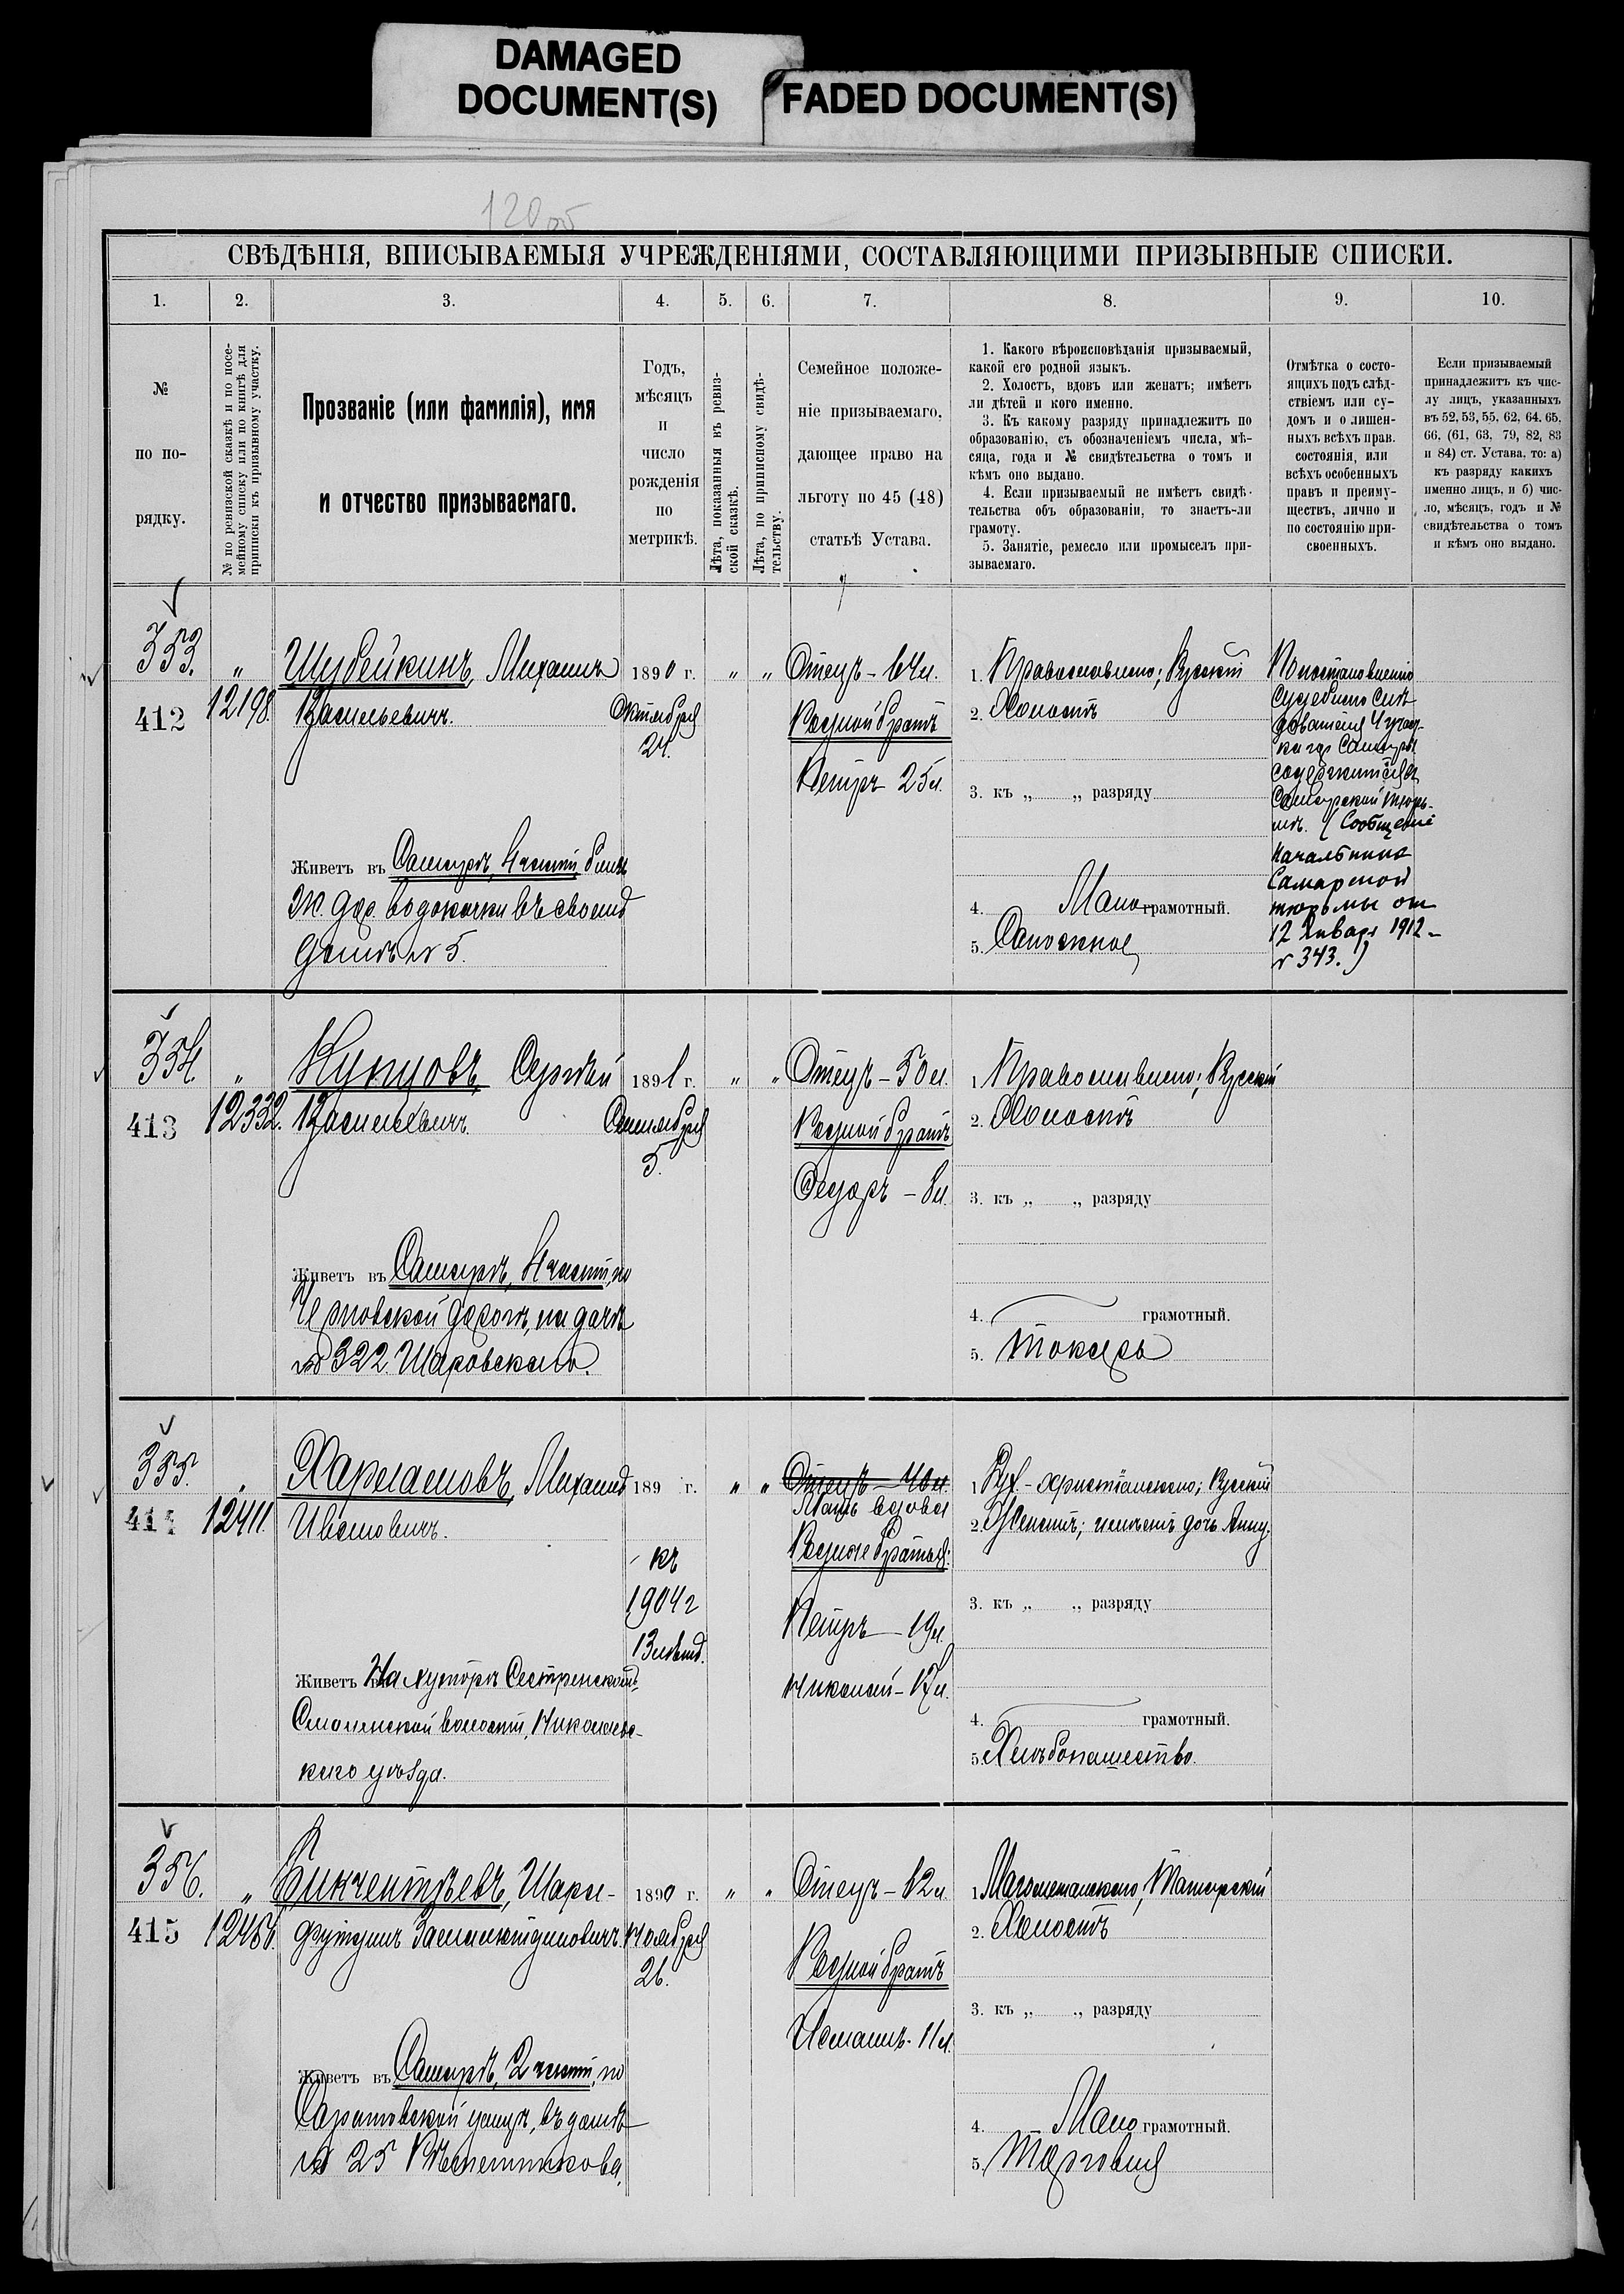 DAMAGED
DOCUMENT(S)
FADED DOCUMENT(S)
120 об
СВѢДѢНІЯ, ВПИСЫВАЕМЫЯ УЧРЕЖДЕНІЯМИ, СОСТАВЛЯЮЩИМИ ПРИЗЫВНЫЕ СПИСКИ.
1. 2. 3. 4. 5. 6. 7. 8. 9. 10.
№
по по-
рядку.
№ по ревизской сказкѣ и по посе-
мейному списку или по книгѣ для
приписки къ призывному участку.
Прозваніе (или фамилія), имя
и отчество призываемаго.
Годъ,
мѣсяцъ
и
число
рожденія
по
метрикѣ.
Лѣта, показанныя въ ревиз-
ской сказкѣ.
Лѣта, по приписному свидѣ-
тельству.
Семейное положе-
ніе призываемаго,
дающее право на
льготу по 45 (48)
статьѣ Устава.
1. Какого вѣроисповѣданія призываемый,
какой его родной языкъ.
2. Холостъ, вдовъ или женатъ; имѣетъ
ли дѣтей и кого именно.
3. Къ какому разряду принадлежитъ по
образованію, съ обозначеніемъ числа, мѣ-
сяца, года и № свидѣтельства о томъ и
кѣмъ оно выдано.
4. Если призываемый не имѣетъ свидѣ-
тельства объ образованіи, то знаетъ-ли
грамоту.
5. Занятіе, ремесло или промыселъ при-
зываемаго.
Отмѣтка о состо-
ящихъ подъ слѣд-
ствіемъ или су-
домъ и о лишен-
ныхъ всѣхъ прав.
состоянія, или
всѣхъ особенныхъ
правъ и преиму-
ществъ, лично и
по состоянію при-
своенныхъ.
Если призываемый
принадлежитъ къ чис-
лу лицъ, указанныхъ
въ 52, 53, 55, 62, 64, 65,
66, (61, 63, 79, 82, 83
и 84) ст. Устава, то: а)
къ разряду какихъ
именно лицъ, и б) чис-
ло, мѣсяцъ, годъ и №
свидѣтельства о томъ
и кѣмъ оно выдано.
353. „
412 12198.
Шубейкинъ, Михаилъ
Васильевичъ.
Живетъ въ Самарѣ, 4 части, близь
ж. дор. водокачки въ своемъ
домѣ № 5.
1890 г.
Октября
24.
„ „
Отецъ – 64 л.
Родной братъ
Петръ 25 л.
1. Православнаго; Русскій
2. Холостъ
3. къ „ „ разряду
4. Мало грамотный.
5. Сапожное
По постановленію
Судебнаго Слѣ-
дователя 4 учас-
ка гор Самары
содержится въ
Самарской тюрь-
мѣ. (Сообщеніе
Начальника
Самарской
тюрьмы от
12 Января 1912
№ 343.)
354. „
413 12332.
Купцовъ, Сергѣй
Васильевичъ.
Живетъ въ Самарѣ, 4 части, по
Черновской дорогѣ, на дачѣ
№ 322. Шаровскаго.
1891 г.
Сентября
5.
„ „
Отецъ – 50 л.
Родной братъ
Федоръ – 8 л.
1. Православнаго; Русскій
2. Холостъ
3. къ „ „ разряду
4. грамотный.
5. Токарь
355. „
414 12411.
Харламовъ, Михаилъ
Ивановичъ.
Живетъ въ На хуторѣ Сестренскомъ,
Смоленской волости, Николаев-
скаго уѣзда.
189 г.
къ
1904 г
13 лѣтъ.
„ „
Отецъ – 40 л.
Мать вдова
Родные братья:
Петръ – 19 л.
Николай – 17 л.
1. Дух.-христіанскаго; Русскій
2. Женатъ; имѣетъ дочь Анну.
3. къ „ „ разряду
4. грамотный.
5. Хлѣбопашество.
356. „
415 12456.
Бикчентѣевъ, Шара-
футдинъ Замалютдиновичъ.
Живетъ въ Самарѣ, 2 части, по
Саратовской улицѣ, въ домѣ
№ 25
1890 г.
Ноября
26.
„ „
Отецъ – 62 л.
Родной братъ
Исмаилъ – 11 л.
1. Магометанскаго; Татарскій
2. Холостъ
3. къ „ „ разряду
4. Мало грамотный.
5. Торговля